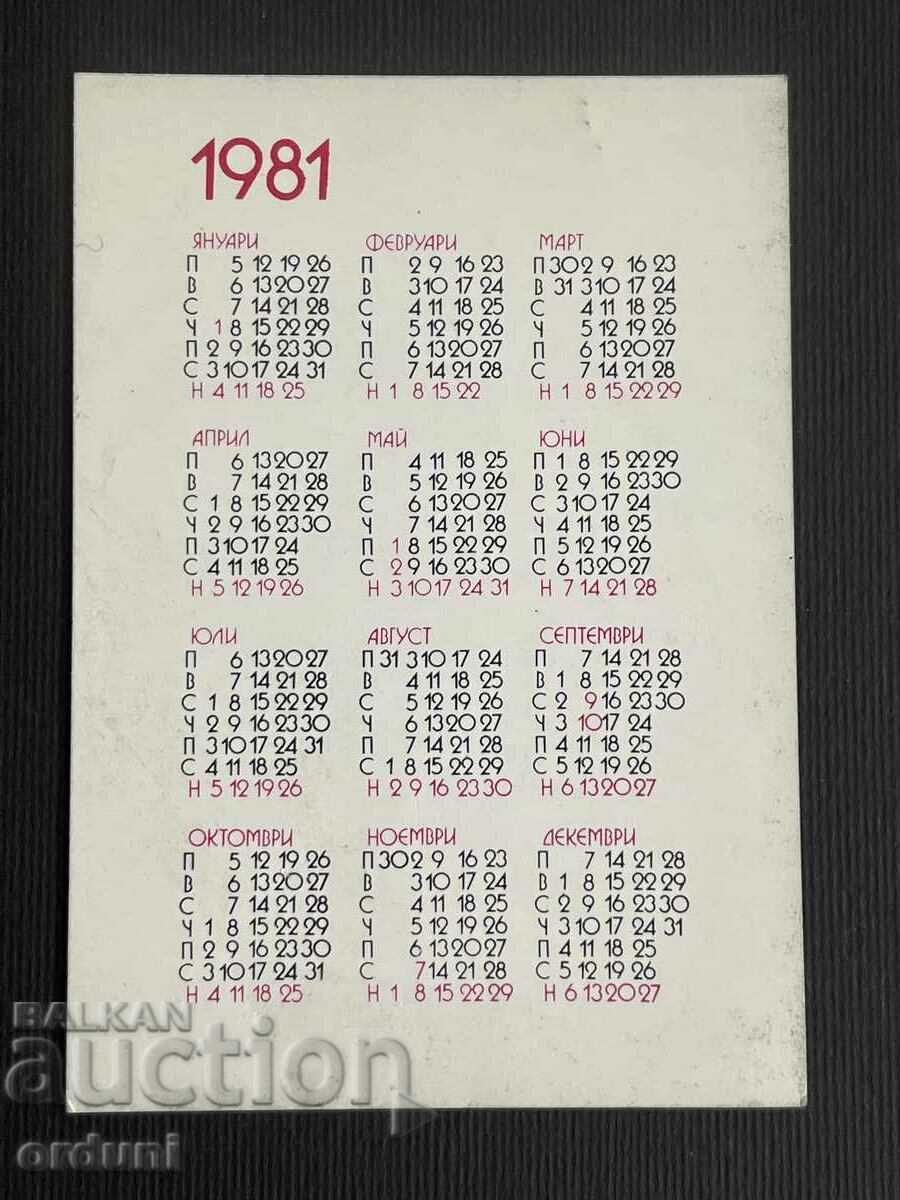 1981
ЯНУАРИ
П 5 12 19 26
В 6 13 20 27
С 7 14 21 28
Ч 1 8 15 22 29
П 2 9 16 23 30
С 3 10 17 24 31
Н 4 11 18 25
ФЕВРУАРИ
П 2 9 16 23
В 3 10 17 24
С 4 11 18 25
Ч 5 12 19 26
П 6 13 20 27
С 7 14 21 28
Н 1 8 15 22
МАРТ
П 30 2 9 16 23
В 31 3 10 17 24
С 4 11 18 25
Ч 5 12 19 26
П 6 13 20 27
С 7 14 21 28
Н 1 8 15 22 29
АПРИЛ
П 6 13 20 27
В 7 14 21 28
С 1 8 15 22 29
Ч 2 9 16 23 30
П 3 10 17 24
С 4 11 18 25
Н 5 12 19 26
МАЙ
П 4 11 18 25
В 5 12 19 26
С 6 13 20 27
Ч 7 14 21 28
П 1 8 15 22 29
С 2 9 16 23 30
Н 3 10 17 24 31
ЮНИ
П 1 8 15 22 29
В 2 9 16 23 30
С 3 10 17 24
Ч 4 11 18 25
П 5 12 19 26
С 6 13 20 27
Н 7 14 21 28
ЮЛИ
П 6 13 20 27
В 7 14 21 28
С 1 8 15 22 29
Ч 2 9 16 23 30
П 3 10 17 24 31
С 4 11 18 25
Н 5 12 19 26
АВГУСТ
П 31 3 10 17 24
В 4 11 18 25
С 5 12 19 26
Ч 6 13 20 27
П 7 14 21 28
С 1 8 15 22 29
Н 2 9 16 23 30
СЕПТЕМВРИ
П 7 14 21 28
В 1 8 15 22 29
С 2 9 16 23 30
Ч 3 10 17 24
П 4 11 18 25
С 5 12 19 26
Н 6 13 20 27
ОКТОМВРИ
П 5 12 19 26
В 6 13 20 27
С 7 14 21 28
Ч 1 8 15 22 29
П 2 9 16 23 30
С 3 10 17 24 31
Н 4 11 18 25
НОЕМВРИ
П 30 2 9 16 23
В 3 10 17 24
С 4 11 18 25
Ч 5 12 19 26
П 6 13 20 27
С 7 14 21 28
Н 1 8 15 22 29
ДЕКЕМВРИ
П 7 14 21 28
В 1 8 15 22 29
С 2 9 16 23 30
Ч 3 10 17 24 31
П 4 11 18 25
С 5 12 19 26
Н 6 13 20 27
BALKAN
auction
orduni